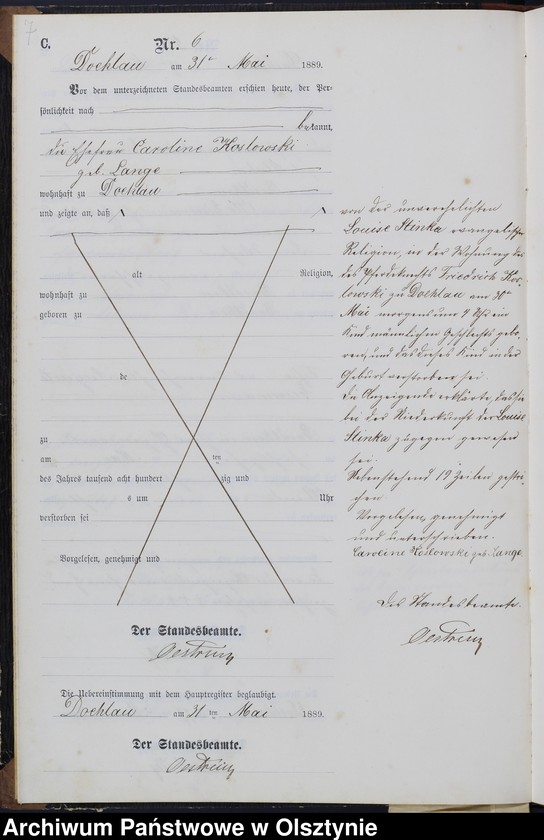 7
C.
Nr. 6
Doehlau am 31ten Mai 1889.
Vor dem unterzeichneten Standesbeamten erschien heute, der Per-
sönlichkeit nach
bekannt,
die Ehefrau Caroline Koslowski
geb. Lange
wohnhaft zu Doehlau
und zeigte an, daß
alt Religion,
wohnhaft zu
geboren zu
de
zu
am ten
des Jahres tausend acht hundert zig und
s um Uhr
verstorben sei
Vorgelesen, genehmigt und
Der Standesbeamte.
Oestreich
Die Uebereinstimmung mit dem Hauptregister beglaubigt.
Doehlau am 31 ten Mai 1889.
Der Standesbeamte.
Oestreich
von der unverehelichten
Louise Stinka evangelischer
Religion, in der Wohnung
des Pferdeknechts Friedrich Kos-
lowski zu Doehlau am 30ten
Mai morgens um 4 Uhr ein
Kind männlichen Geschlechts gebo-
ren, und daß dieses Kind in der
Geburt verstorben sei.
Die Anzeigende erklärte, daß sie
bei der Niederkunft der Louise
Stinka zugegen gewesen
sei.
Nebenstehend 19 Zeilen gestri-
chen
Vorgelesen, genehmigt
und unterschrieben.
Caroline Koslowski geb. Lange
Der Standesbeamte.
Oestreich
Archiwum Państwowe w Olsztynie